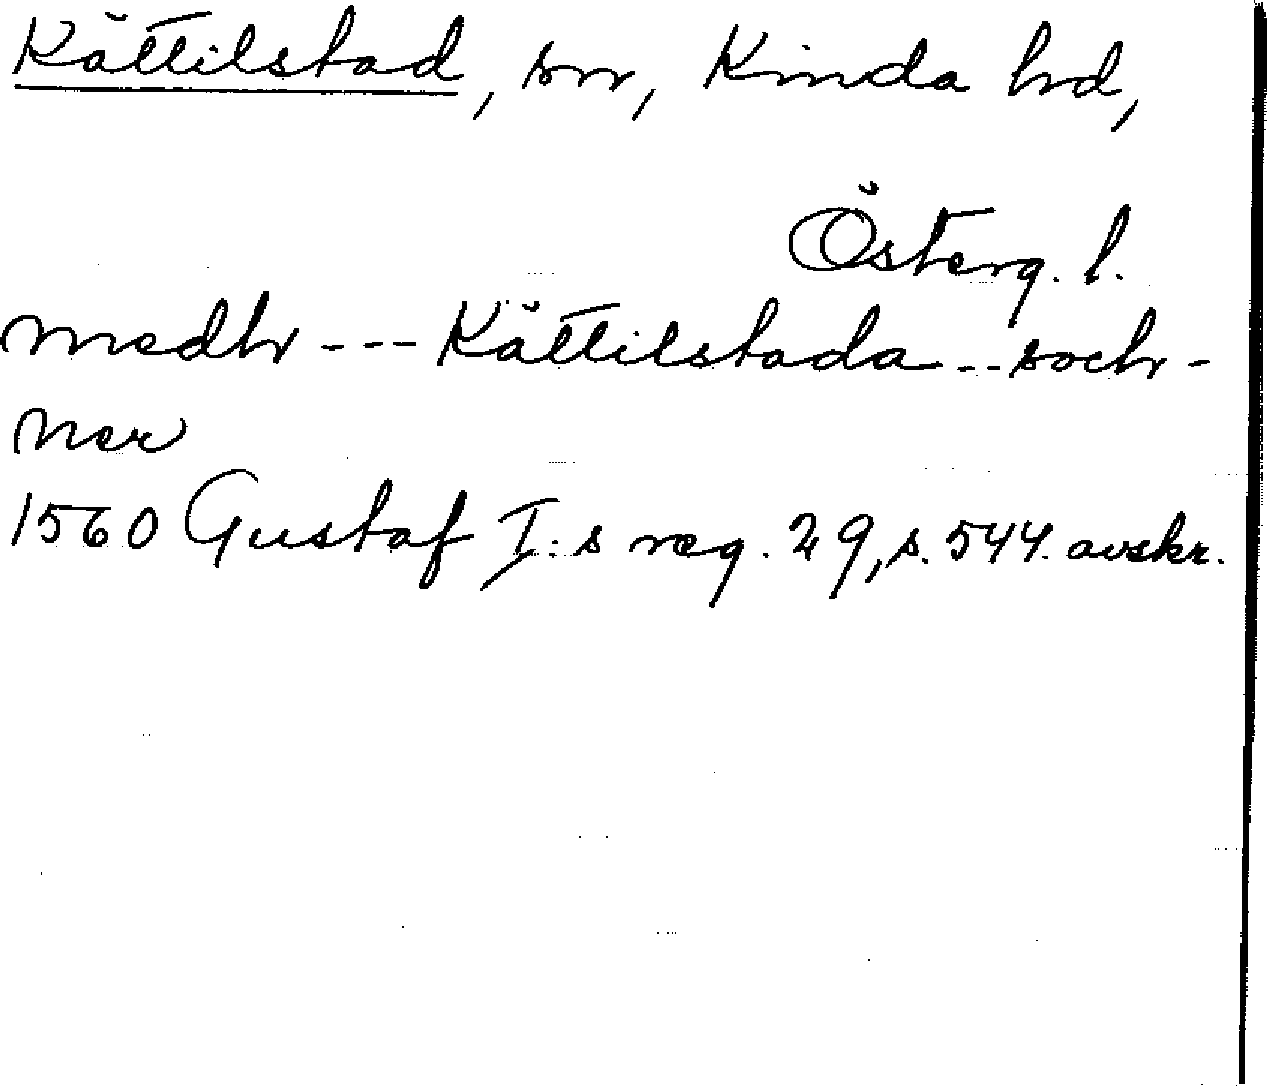 Kättilstad, sn, Kinda hd,
Österg. l.
medh --- Kättilstada -- soch-
ner
1560 Gustaf I:s reg. 29, s. 544. avskr.